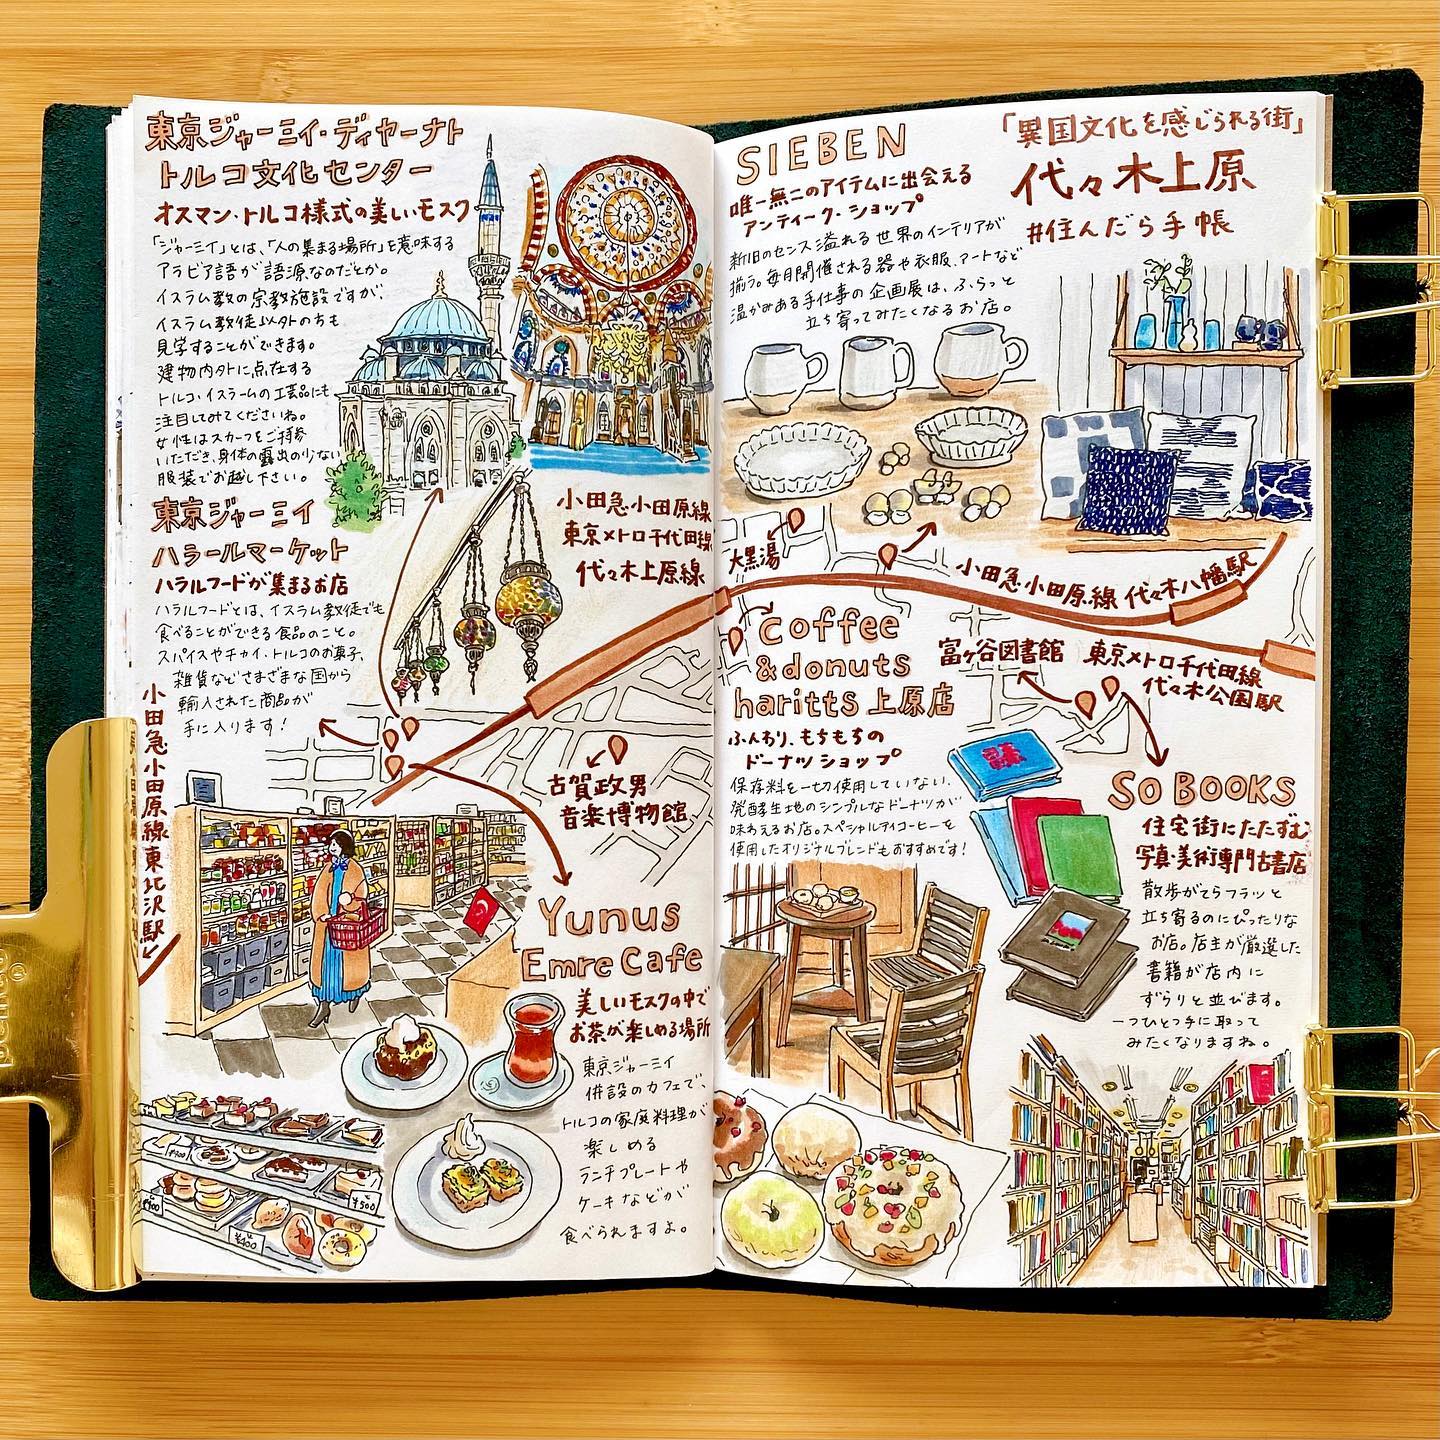 東京ジャーミイ・ディヤーナト
トルコ文化センター
オスマン・トルコ様式の美しいモスク
「ジャーミイ」とは、「人の集まる場所」を意味する
アラビア語が語源なのだとか。
イスラム教の宗教施設ですが、
イスラム教徒以外の方も
見学することができます。
建物内外に点在する
トルコ・イスラームの工芸品にも
注目してみてくださいね。
女性はスカーフをご持参
いただき、身体の露出の少ない
服装でお越し下さい。
東京ジャーミイ
ハラールマーケット
ハラルフードが集まるお店
ハラルフードとは、イスラム教徒でも
食べることができる食品のこと。
スパイスやチャイ・トルコのお菓子、
雑貨などさまざまな国から
輸入された商品が
手に入ります!
小田急小田原線
東京メトロ千代田線
代々木上原線
小田急小田原線東北沢駅
古賀政男
音楽博物館
Yunus
Emre Cafe
美しいモスクの中で
お茶が楽しめる場所
東京ジャーミイ
併設のカフェで、
トルコの家庭料理が
楽しめる
ランチプレートや
ケーキなどが
食べられますよ。
¥400
¥500
¥400
「異国文化を感じられる街」
代々木上原
#住んだら手帳
SIEBEN
唯一無二のアイテムに出会える
アンティーク・ショップ
新旧のセンス溢れる世界のインテリアが
揃う。毎月開催される器や衣服、アートなど
温かみある手仕事の企画展は、ふらっと
立ち寄ってみたくなるお店。
大黒湯
小田急小田原線 代々木八幡駅
coffee
&donuts
haritts 上原店
ふんわり、もちもちの
ドーナツショップ
保存料を一切使用していない、
発酵生地のシンプルなドーナツが
味わえるお店。スペシャルティコーヒーを
使用したオリジナルブレンドもおすすめです!
富ヶ谷図書館
東京メトロ千代田線
代々木公園駅
SO BOOKS
住宅街にたたずむ
写真・美術専門古書店
散歩がてらフラッと
立ち寄るのにぴったりな
お店。店主が厳選した
書籍が店内に
ずらりと並びます。
一つひとつ手に取って
みたくなりますね。